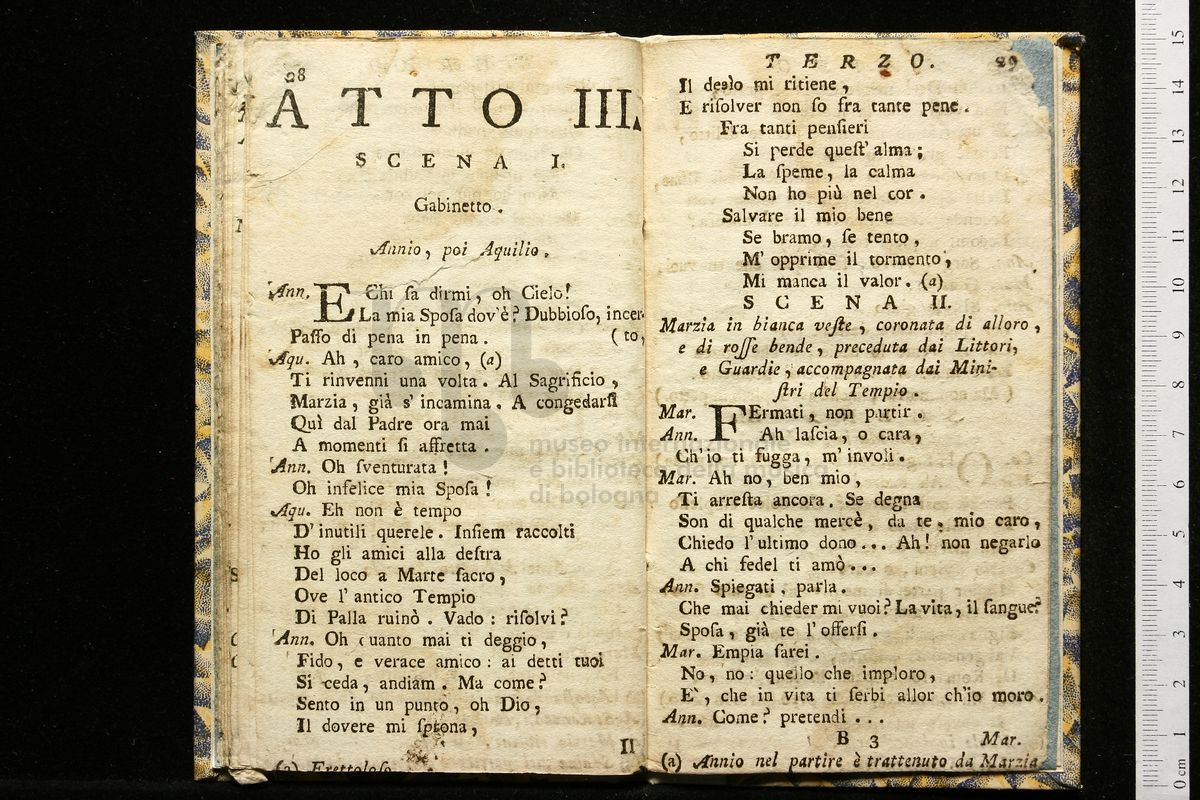 28
ATTO III.
SCENA I.
Gabinetto.
Annio, poi Aquilio.
Ann. E Chi ſa dirmi, oh Cielo!
La mia Spoſa dov'è? Dubbioſo, incer-
Paſſo di pena in pena. (to,
Aqu. Ah, caro amico, (a)
Ti rinvenni una volta. Al Sagrificio,
Marzia, già s' incamina. A congedarſi
Quì dal Padre ora mai
A momenti ſi affretta.
Ann. Oh ſventurata!
Oh infelice mia Spoſa!
Aqu. Eh non è tempo
D' inutili querele. Inſiem raccolti
Ho gli amici alla deſtra
Del loco a Marte ſacro,
Ove l' antico Tempio
Di Palla ruinò. Vado: riſolvi?
Ann. Oh quanto mai ti deggio,
Fido, e verace amico: ai detti tuoi
Si ceda, andiam. Ma come?
Sento in un punto, oh Dio,
Il dovere mi ſprona,
Il
(a) Frettoloſo
TERZO. 29
Il desìo mi ritiene,
E riſolver non ſo fra tante pene.
Fra tanti penſieri
Si perde queſt' alma;
La ſpeme, la calma
Non ho più nel cor.
Salvare il mio bene
Se bramo, ſe tento,
M' opprime il tormento,
Mi manca il valor. (a)
SCENA II.
Marzia in bianca veſte, coronata di alloro,
e di roſſe bende, preceduta dai Littori,
e Guardie, accompagnata dai Mini-
ſtri del Tempio.
Mar. FErmati, non partir.
Ann. Ah laſcia, o cara,
Ch'io ti fugga, m' involi.
Mar. Ah no, ben mio,
Ti arreſta ancora. Se degna
Son di qualche mercè, da te, mio caro,
Chiedo l' ultimo dono... Ah! non negarlo
A chi fedel ti amò...
Ann. Spiegati, parla.
Che mai chieder mi vuoi? La vita, il ſangue?
Spoſa, già te l' offerſi.
Mar. Empia ſarei.
No, no: quello che imploro,
E', che in vita ti ſerbi allor ch'io moro.
Ann. Come? pretendi...
B 3 Mar.
(a) Annio nel partire è trattenuto da Marzia
museo internazionale
e biblioteca della musica
di bologna
15
14
13
12
11
10
9
8
7
6
5
4
3
2
1
0 cm